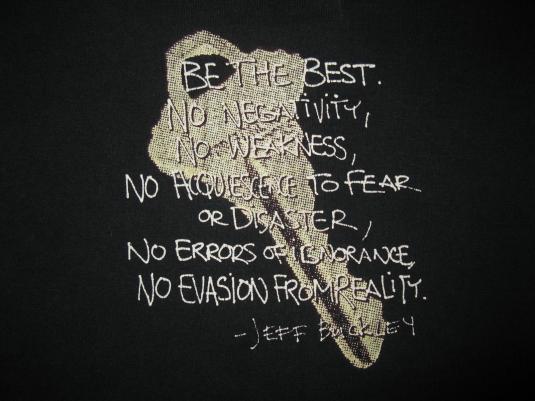 BE THE BEST.
NO NEGATIVITY,
NO WEAKNESS,
NO ACQUIESCENCE TO FEAR
OR DISASTER,
NO ERRORS OF IGNORANCE,
NO EVASION FROM REALITY.
-JEFF BUCKLEY